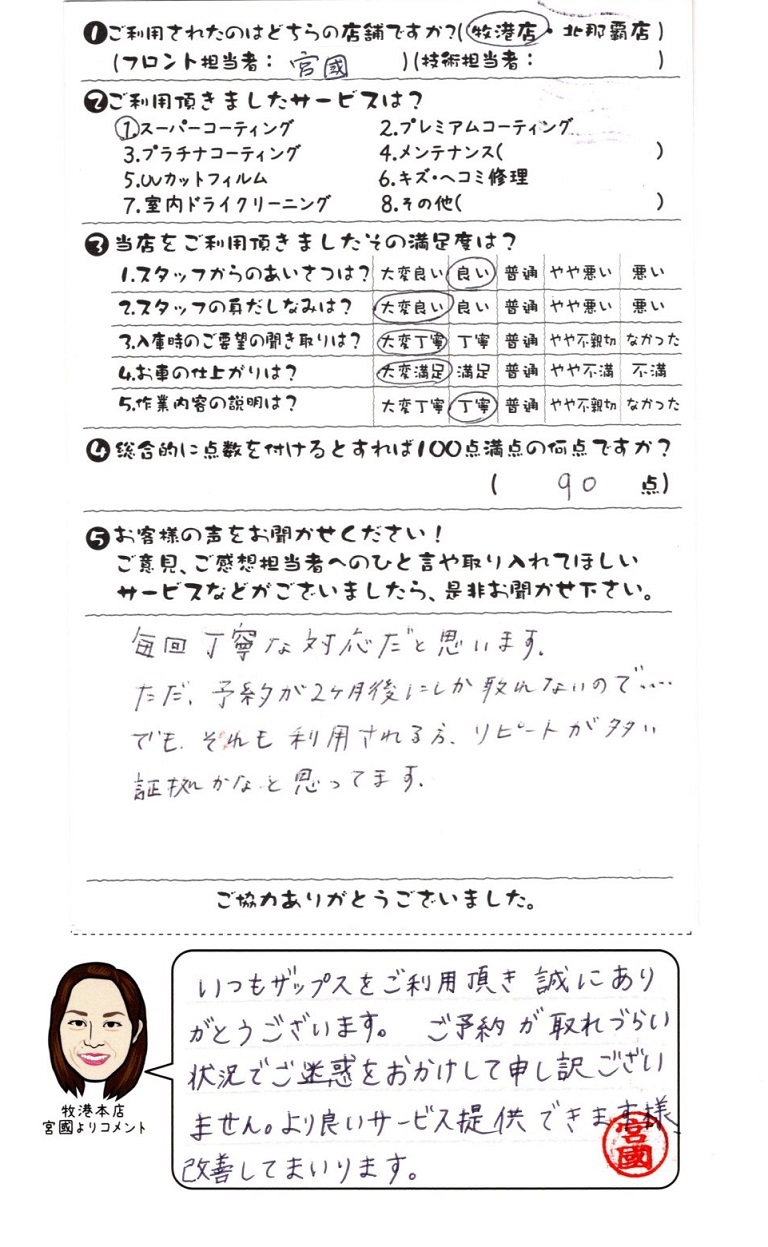 ❶ご利用されたのはどちらの店舗ですか?(牧港店・北那覇店)
(フロント担当者: 宮國 )(技術担当者: )
❷ご利用頂きましたサービスは?
1.スーパーコーティング 2.プレミアムコーティング
3.プラチナコーティング 4.メンテナンス( )
5.UVカットフィルム 6.キズ・ヘコミ修理
7.室内ドライクリーニング 8.その他( )
❸当店をご利用頂きましたその満足度は?
1.スタッフからのあいさつは? 大変良い 良い 普通 やや悪い 悪い
2.スタッフの身だしなみは? 大変良い 良い 普通 やや悪い 悪い
3.入庫時のご要望の聞き取りは? 大変丁寧 丁寧 普通 やや不親切 なかった
4.お車の仕上がりは? 大変満足 満足 普通 やや不満 不満
5.作業内容の説明は? 大変丁寧 丁寧 普通 やや不親切 なかった
❹総合的に点数を付けるとすれば100点満点の何点ですか?
( 90 点)
❺お客様の声をお聞かせください!
ご意見、ご感想担当者へのひと言や取り入れてほしい
サービスなどがございましたら、是非お聞かせ下さい。
毎回丁寧な対応だと思います。
ただ、予約が2ヶ月後にしか取れないので…
でも、それも利用される方、リピートが多い
証拠かなと思ってます。
ご協力ありがとうございました。
いつもザップスをご利用頂き誠にあり
がとうございます。 ご予約が取れづらい
状況でご迷惑をおかけして申し訳ござい
ません。より良いサービス提供できます様、
改善してまいります。
宮國
牧港本店
宮國よりコメント